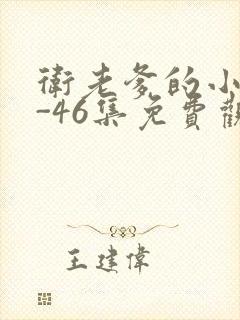 衛老爹的小
-46集免費觀
王建偉